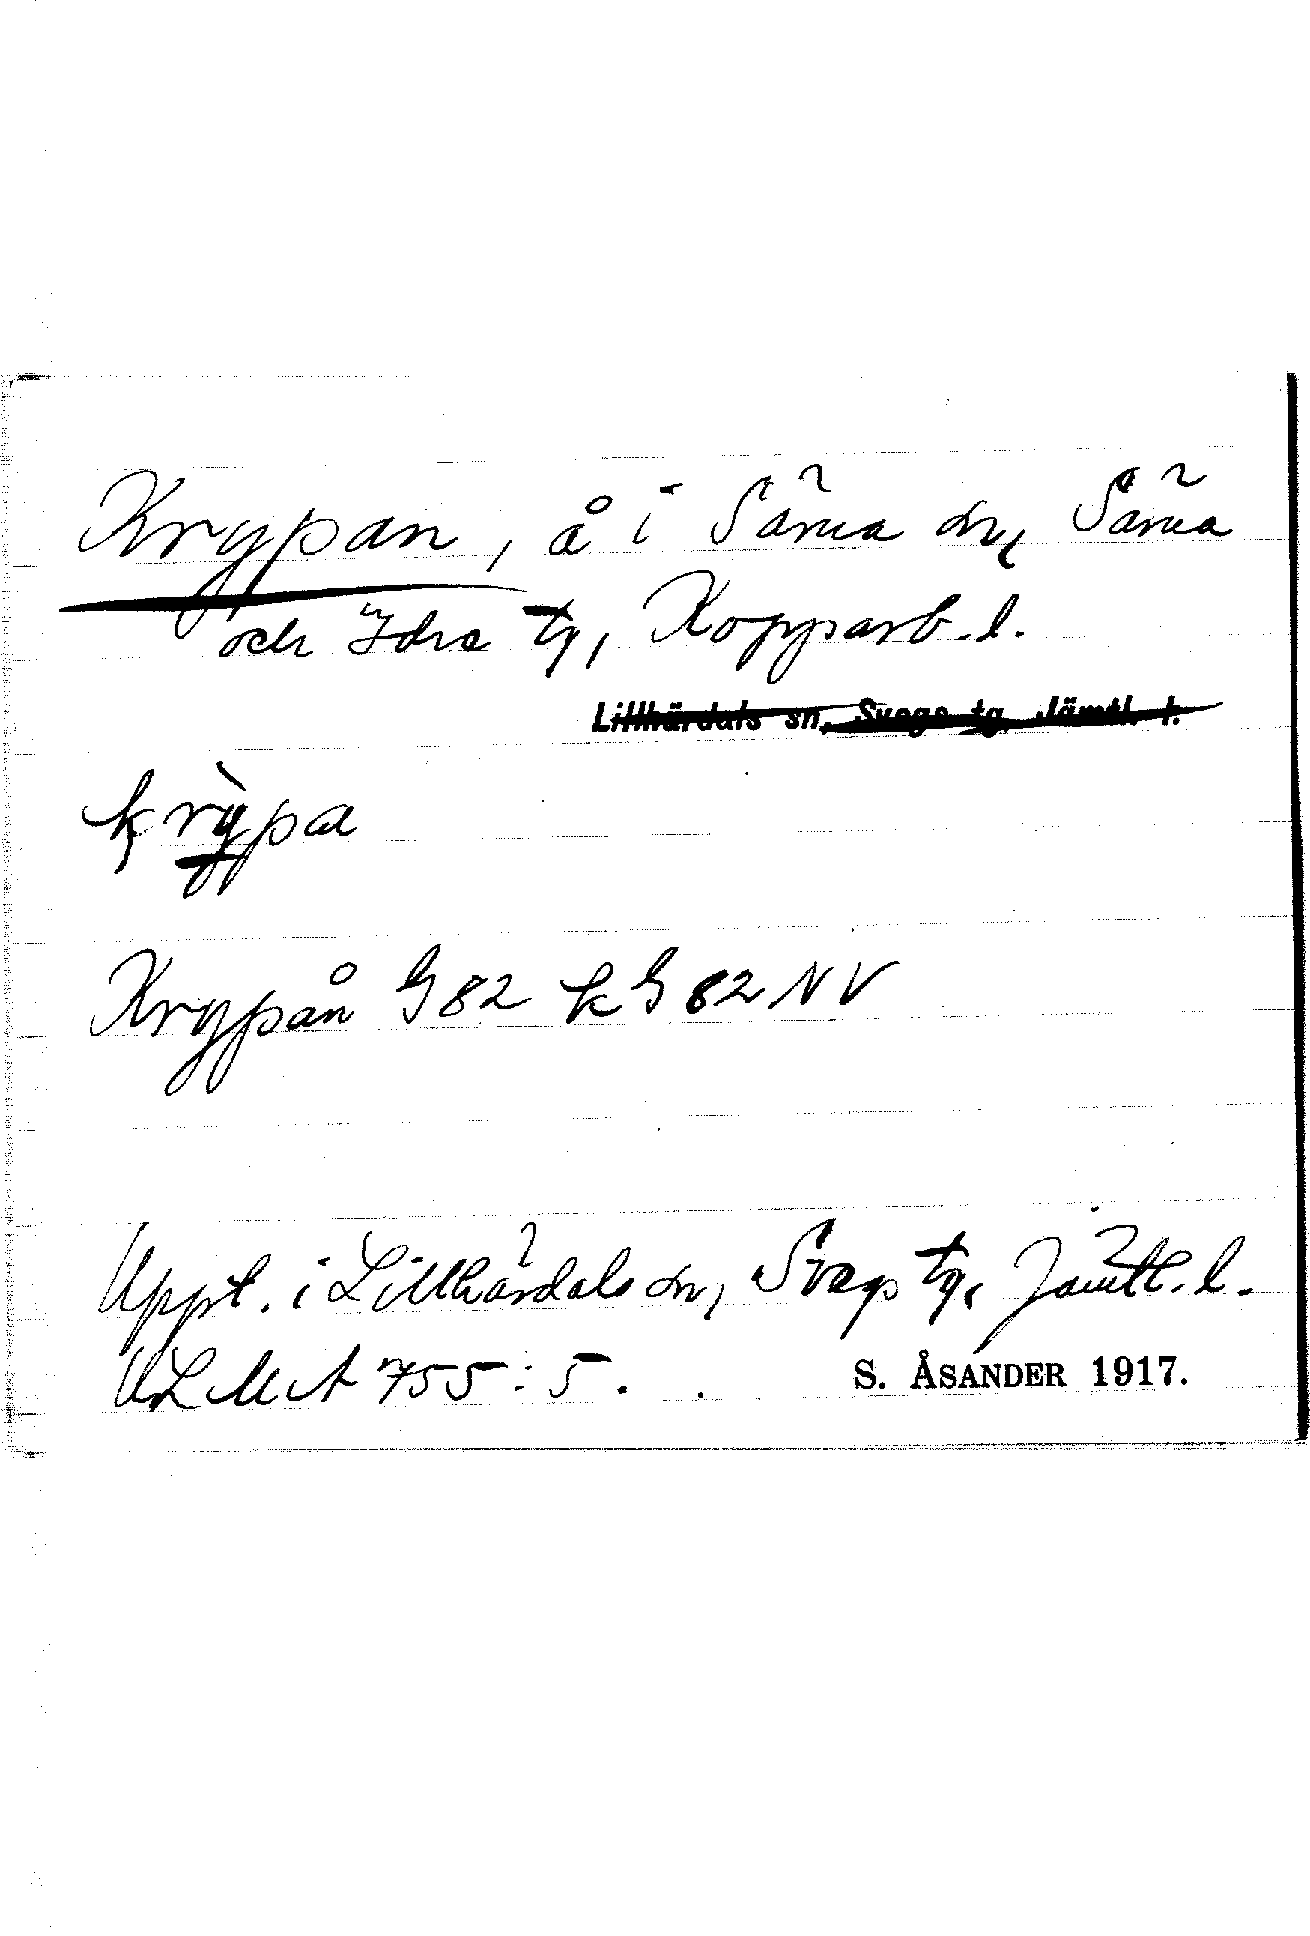 Krypan, å i Särna sn, Särna
och Idre tg, Kopparb. l.
Lillhärdals sn, Svegs tg, Jämtl. l.
krỳpa
Krypån G82 k G82NV
Uppt. i Lillhärdals sn, Svegs tg, Jämtl. l.
ULMA 755:5.
S. ÅSANDER 1917.